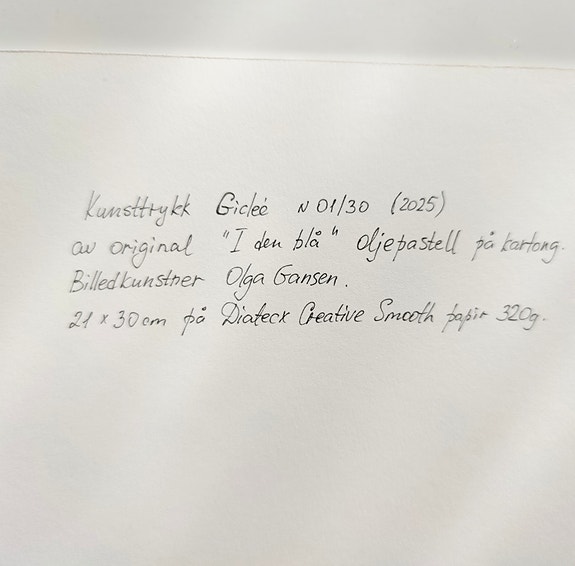 Kunsttrykk Gicleé N 01/30 (2025)
av original "I den blå" Oljepastell på kartong.
Billedkunstner Olga Gansen.
21 x 30 cm på Diatecx Creative Smooth papir 320g.